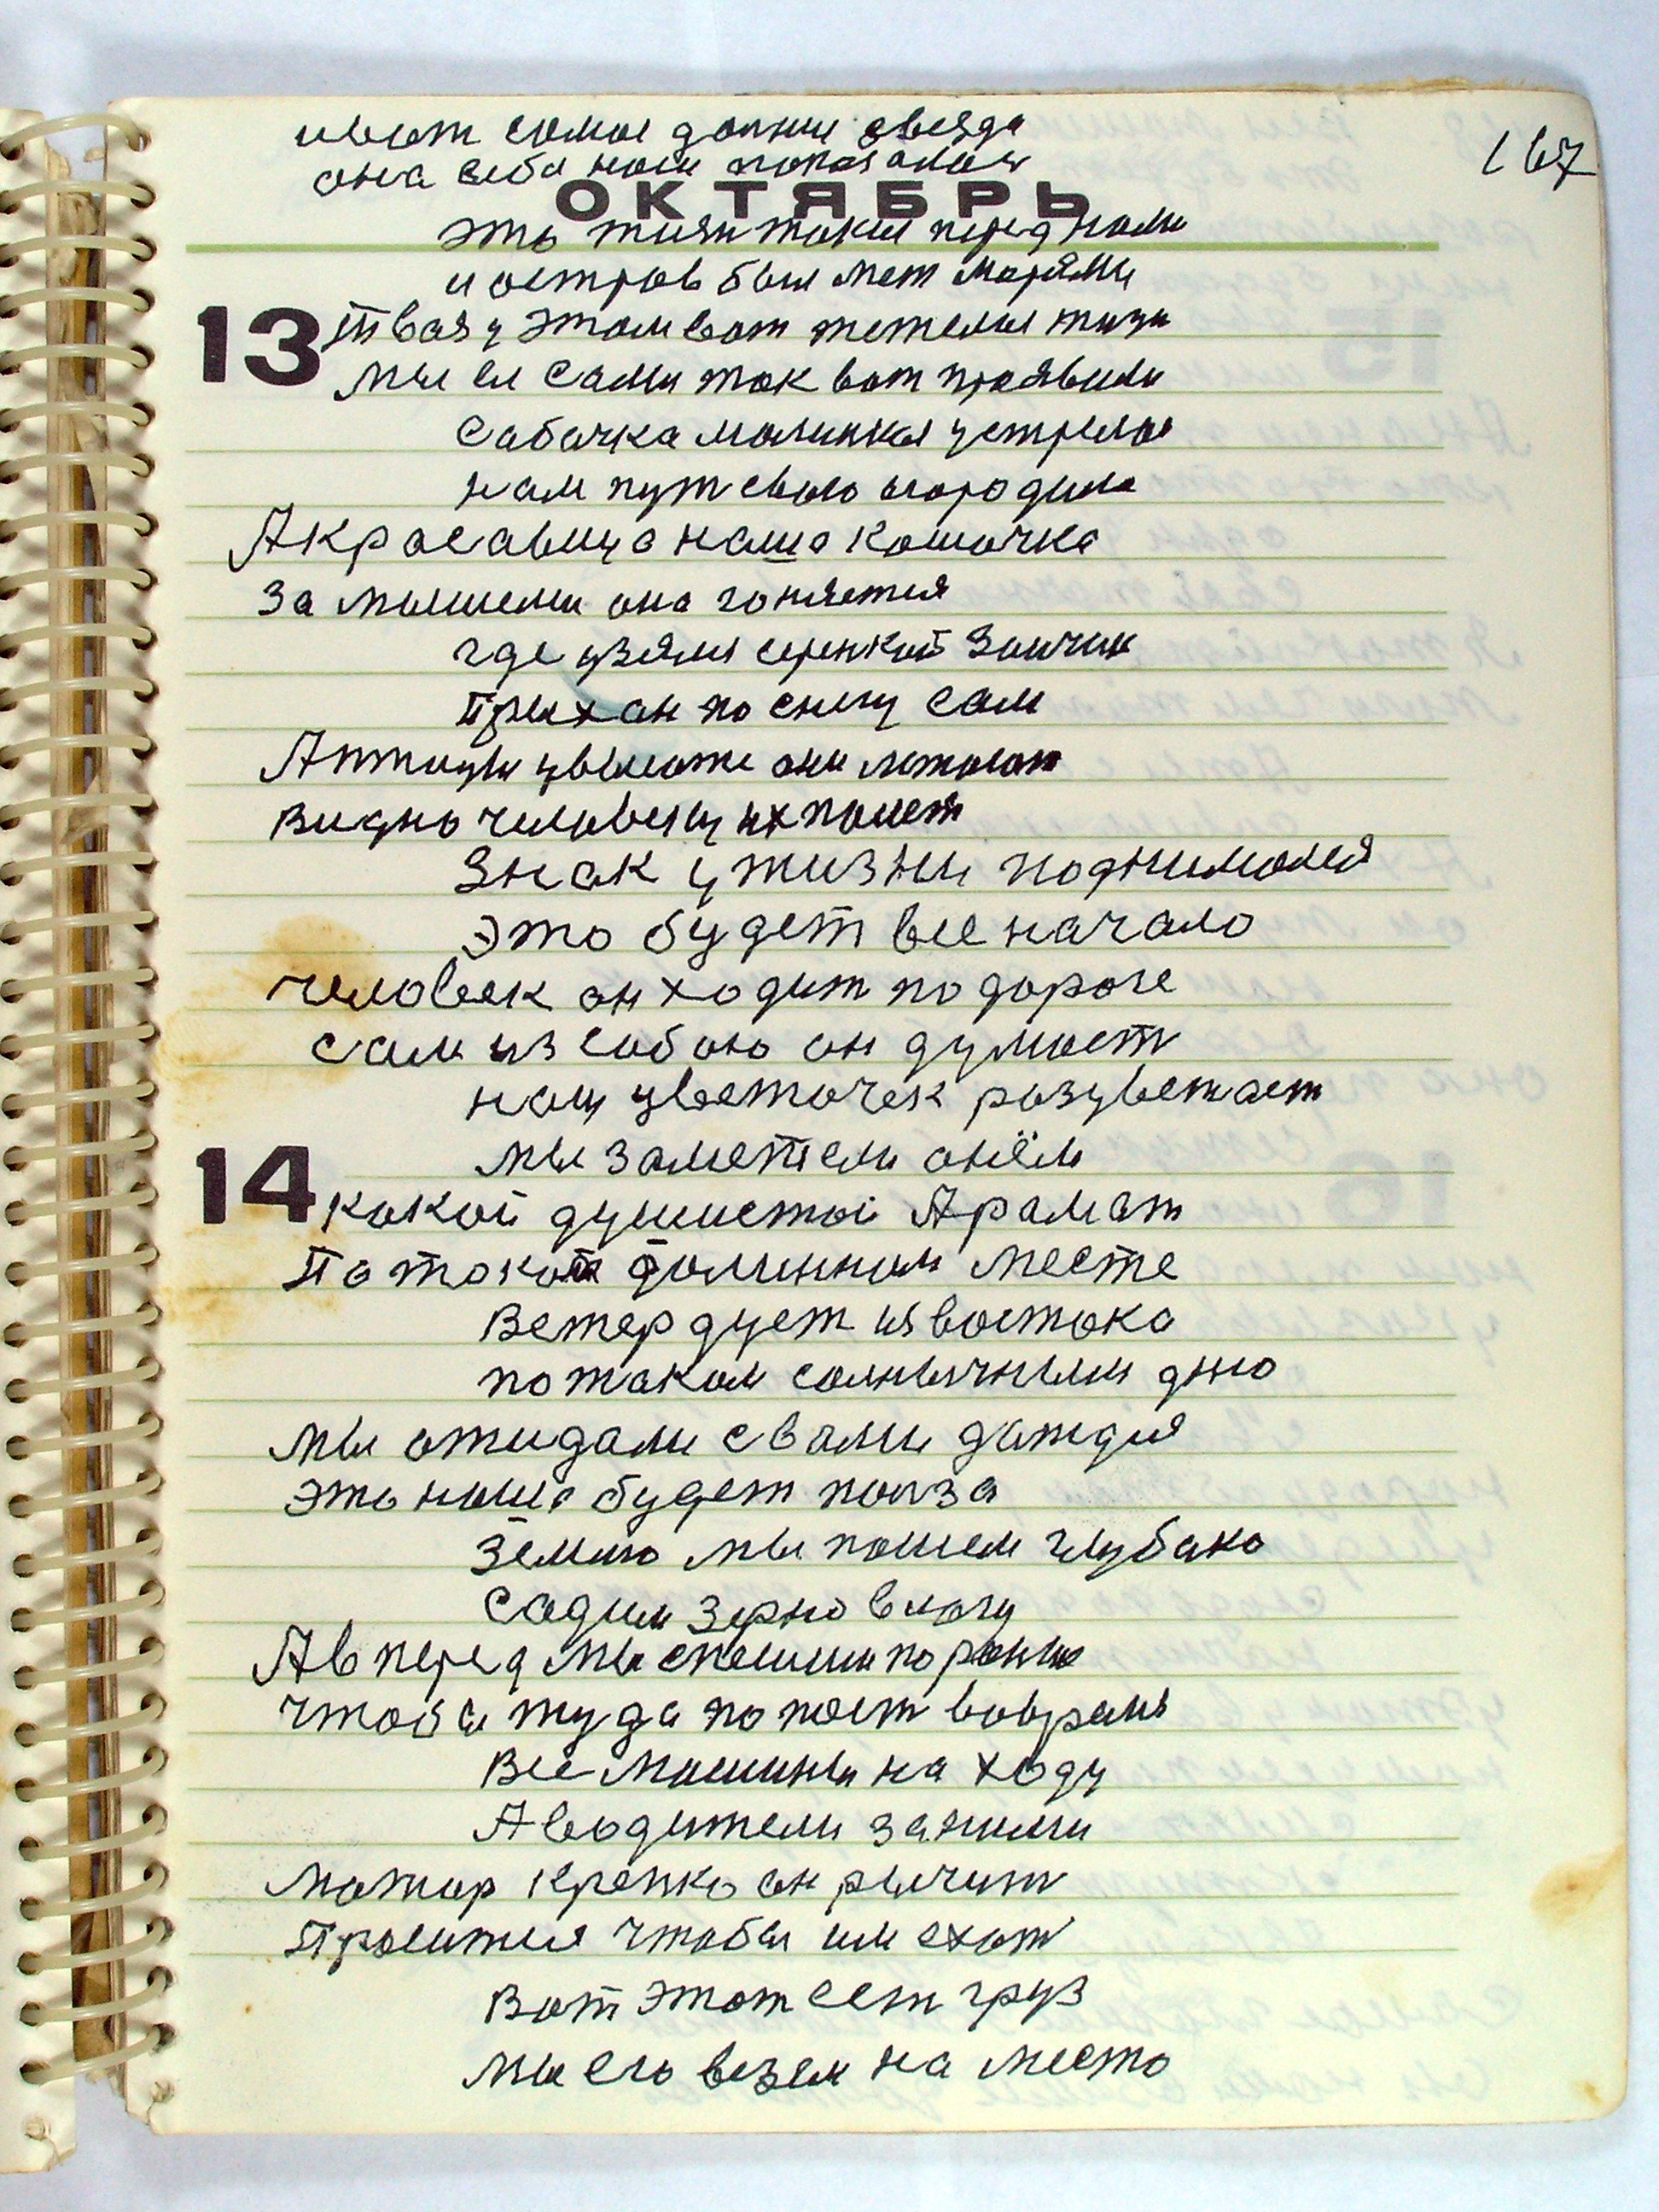 167
ивот самая дальни звезда
она себя нам показалась
ОКТЯБРЬ
это жизн такая перед нами
и остров был меж морями
13
Твая у этом вот тетелая жизн
мы ея сами так вот проявили
Сабачка малинкая устрелая
нам пут свою огородила
А красавица наша кошочка
За мышеми она гоняется
где узялся серенкий Заичик
Прыхан по снегу сам
А птицы увысоте они летают
видно человеку их полет
Знак у жизни поднимался
Это будет все начало
человек он ходит по дороге
сам из собою он думает
наш цветочек разцветает
мы заметели онём
14
какой душистой Арамат
По такой долинном месте
Ветер дует из востока
по таком солнычным дню
мы ожидали с вами дождя
это наша будет полза
Землю мы пашем глубако
Садим зерно влагу
А вперед мы спешим по раньше
чтобы туда попаст вовремь
Все машины на ходу
А водители заними
матор крепко он рычит
Просится чтобы им ехат
Вот этот ест груз
мы его везем на место